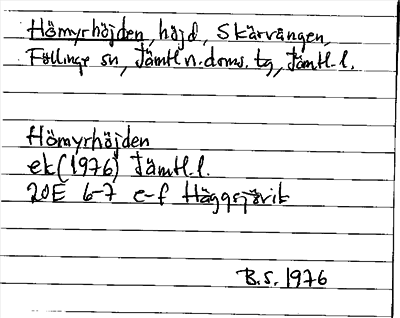 Hömyrhöjden, höjd, Skärvången,
Föllinge sn, Jämtl. n. doms. tg, Jämtl. l.
Hömyrhöjden
ek (1976) Jämtl. l.
20E 6-7 e-f Häggsjövik
B.S. 1976